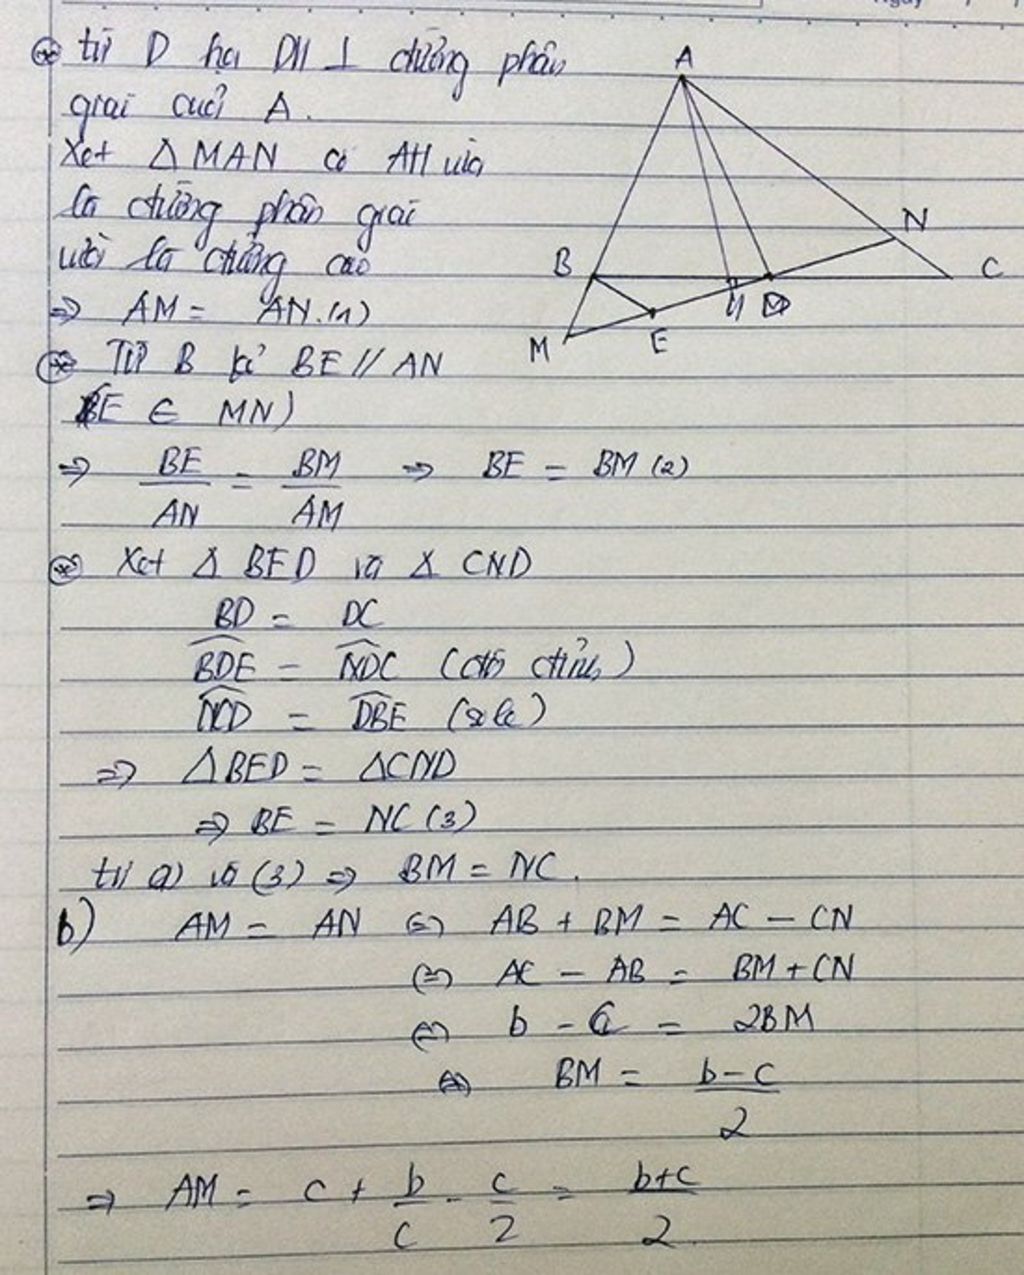 từ D hạ DH ⊥ đường phân
giác của A.
Xét △ MAN có AH vừa
là đường phân giác
vừa là đường cao
=> AM = AN. (1)
Từ B kẻ BE // AN
(E ∈ MN)
=> BE/AN = BM/AM => BE = BM (2)
Xét △ BED và △ CND
BD = DC
BDE = NDC (đối đỉnh)
NCD = DBE (so le)
=> △BED = △CND
=> BE = NC (3)
từ (2) và (3) => BM = NC.
b) AM = AN <=> AB + BM = AC - CN
<=> AC - AB = BM + CN
<=> b - c = 2BM
<=> BM = b-c/2
=> AM = c + b/c - c/2 = b+c/2
A
B
C
N
H
D
M
E